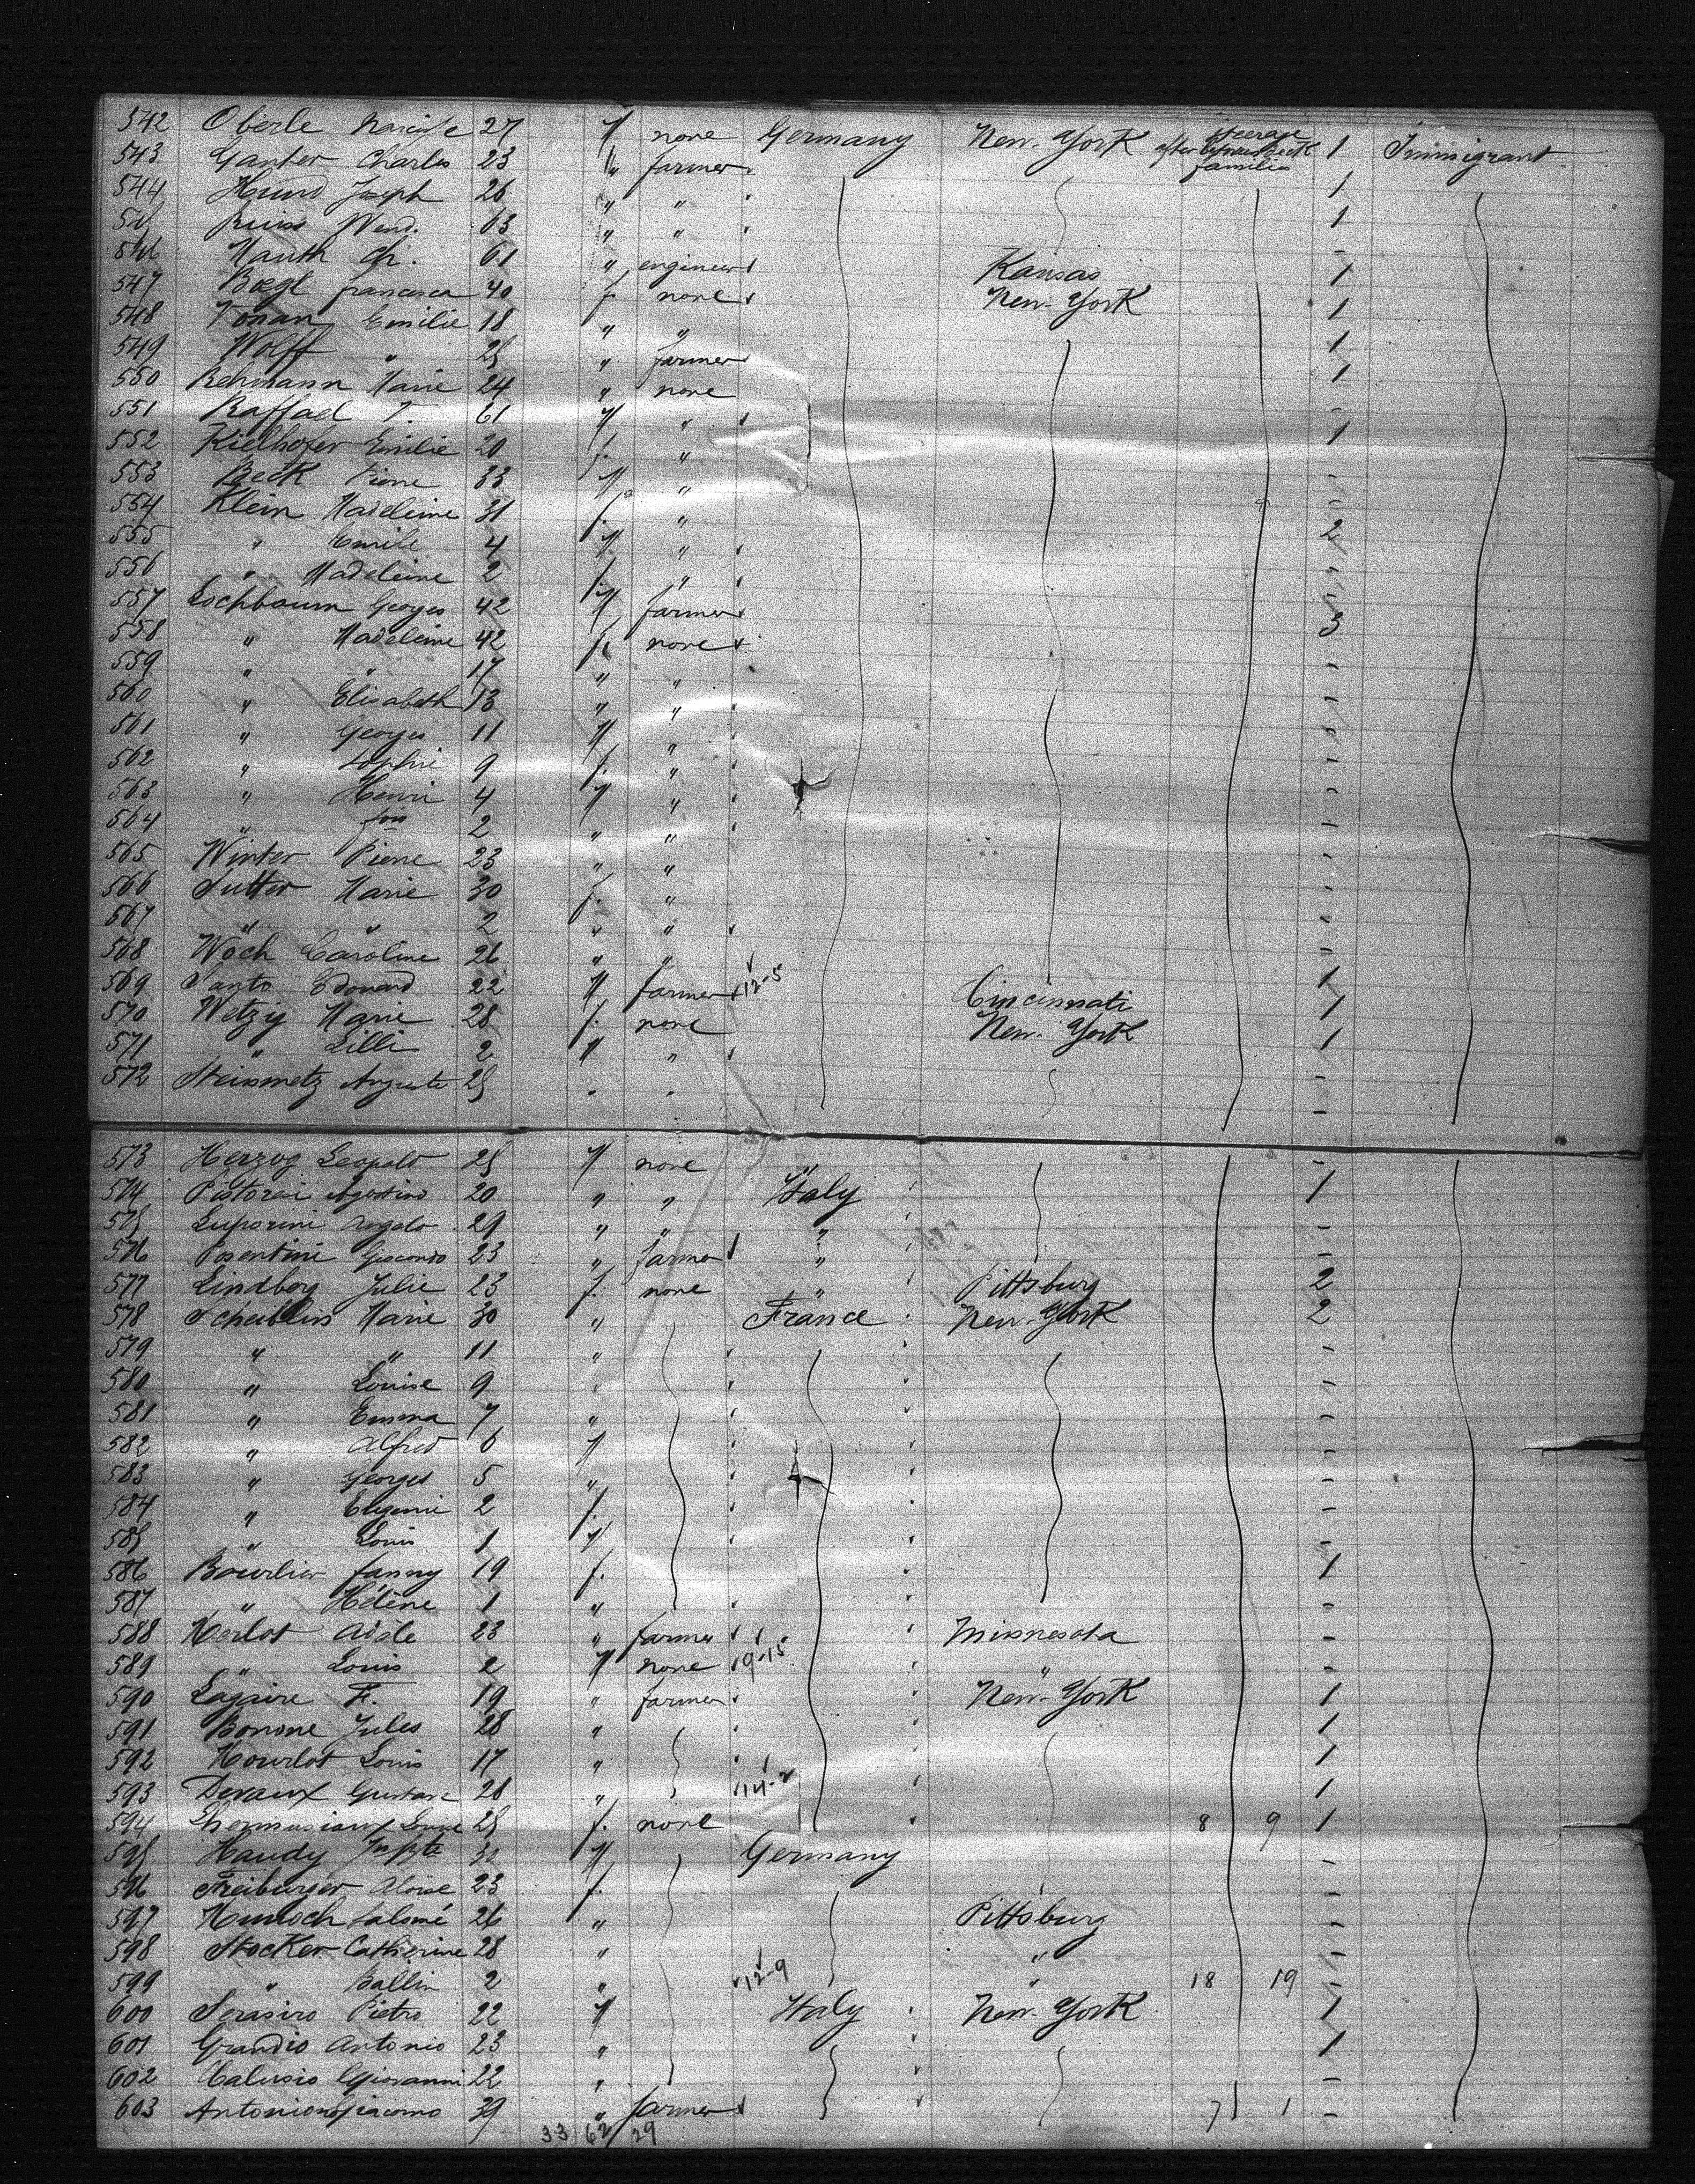 542 Oberle Narcisse 27 M none Germany New-York steerage after between deck families 1 Immigrant
543 Ganter Charles 23 " farmer
544 Hund Joseph 26 " " 1
545 Wend. 63 " " 1
546 Hauth Ch. 61 " engineer Kansas -
547 Bœgl francisca 40 f. none New-York 1
548 Emilie 18 " " 1
549 Wolff " 25 " farmer 1
550 Rehmann Marie 24 " none 1
551 Raffael T. 61 M " -
552 Kielhofer Emilie 20 f. " 1
553 Beck Pierre 33 M " -
554 Klein Madeleine 31 f. " -
555 " Emile 4 M " 2
556 " Madeleine 2 f. " -
557 Eschbaum Georges 42 M farmer -
558 " Madeleine 42 f. none 3
559 " " 17 " " -
560 " Elisabeth 13 " " -
561 " Georges 11 M " -
562 " Sophie 9 f. " -
563 " Henri 4 M " -
564 " 2 " " -
565 Winter Pierre 23 " " -
566 Sutter Marie 30 f. " -
567 " " 2 " " -
568 Woch Caroline 26 " " -
569 Santo Edouard 22 M farmer 12-5 Cincinnati 1
570 Wetzig Marie 28 f. none New-York 1
571 " Lilli 2 M " 1
572 Steinmetz Auguste 25 " " -
573 Herzog Leopold 25 M none " -
574 Agostino 20 " " Italy 1
575 Luporini Angelo 29 " " " -
576 Giocondo 23 " farmer " -
577 Lindberg Julie 23 f. none " Pittsburg 2
578 Marie 30 " France New-York 2
579 " " 11 " -
580 " Louise 9 " -
581 " Emma 7 " -
582 " Alfred 6 M -
583 " Georges 5 " -
584 " Eugenie 2 f. -
585 " Louis 1 M -
586 Bourlier fanny 19 f. 1
587 " Hélène 1 " -
588 Merlot Adèle 23 " farmer Minnesota -
589 " Louis 2 M none 9-15 " -
590 Lagaire F. 19 " farmer New-York 1
591 Jules 28 " 1
592 Hourlot Louis 17 " 1
593 Devaux Gustave 28 " 14-2 1
594 25 f. none 8 9 1
595 Haudy 30 M Germany -
596 Freiburger Aloise 23 f. -
597 Salomé 26 " Pittsburg -
598 Stocker Catherine 28 " " -
599 " Ballin 2 " 12-9 " 18 19 -
600 Serasiro Pietro 22 M Italy New-York 1
601 Grandio Antonio 23 " 1
602 Giovanni 22 " -
603 Giacomo 39 " farmer 7 1 -
33 62/29